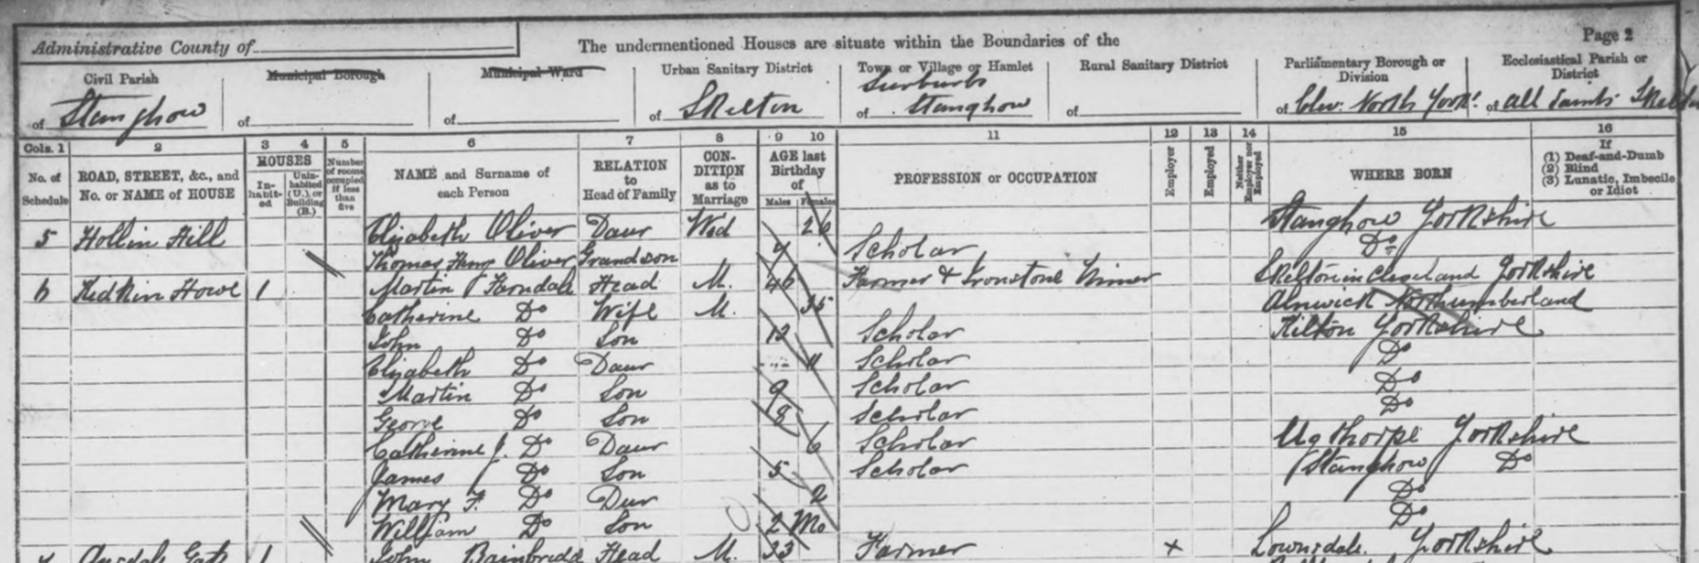 Administrative County of
The undermentioned Houses are situate within the Boundaries of the
Page 2
Civil Parish of Stanghow
Municipal Borough of
Municipal Ward of
Urban Sanitary District of Skelton
Town or Village or Hamlet of Suburbs Stanghow
Rural Sanitary District of
Parliamentary Borough or Division of Clev. North York.
Ecclesiastical Parish or District of All Saints
Cols. 1 2 3 4 5 6 7 8 9 10 11 12 13 14 15 16
No. of Schedule
ROAD, STREET, &c., and No. or NAME of HOUSE
HOUSES
In-habit-ed
Unin-habited (U.), or Building (B.)
Number of rooms occupied if less than five
NAME and Surname of each Person
RELATION to Head of Family
CON-DITION as to Marriage
AGE last Birthday of
Males Females
PROFESSION or OCCUPATION
Employer
Employed
Neither Employer nor Employed
WHERE BORN
If
(1) Deaf-and-Dumb
(2) Blind
(3) Lunatic, Imbecile or Idiot
5 Hollin Hill Elizabeth Oliver Daur Wid 26 Stanghow Yorkshire
Thomas Oliver Grandson Scholar Do
6 Kidkin Howe 1 Martin Farndale Head M. 46 Farmer & Ironstone Miner Skelton in Cleveland Yorkshire
Catherine Do Wife M. 35 Alnwick Northumberland
John Do Son 12 Scholar Kilton Yorkshire
Elizabeth Do Daur 11 Scholar Do
Martin Do Son 9 Scholar Do
George Do Son 8 Scholar Do
Catherine J. Do Daur 6 Scholar Ugthorpe Yorkshire
James Do Son 5 Scholar Stanghow Do
Mary F. Do Daur 2 Do
William Do Son 2 Mo Do
1 John Bainbridge Head M. 33 Farmer x Lownsdale. Yorkshire